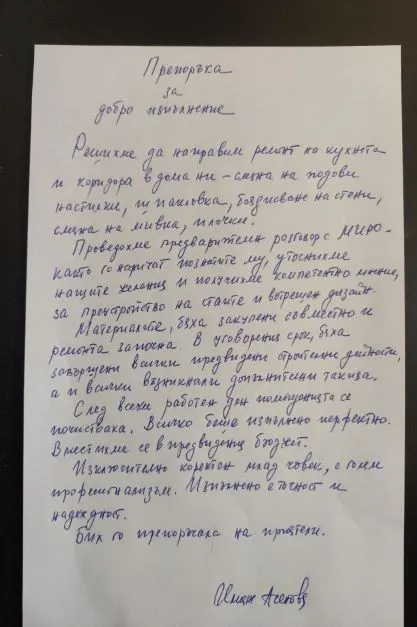 Препоръка
за
добро изпълнение
Решихме да направим ремонт на кухнята
и коридора в дома ни – смяна на подови
настилки, шпакловка, боядисване на стени,
смяна на мивка, плочки.
Проведохме предварителен разговор с МИРО-
както го наричат познатите му, уточнихме
нащите желания и получихме компетентно мнение,
за преустройство на стаите и вътрешен дизайн.
Материалите, бяха закупени съвместно и
ремонта започна. В уговорения срок, бяха
завършени всички предвидени строителни дейности,
а и всички възникнали допълнителни такива.
След всеки работен ден помещенията се
почистваха. Всичко беше изпълнено перфектно.
Вместихме се в предвидения бюджет.
Изключително коректен млад човек, с голям
професионализъм. Изпълнено с точност и
надеждност.
Бих го препоръчала на приятели.
Асенова